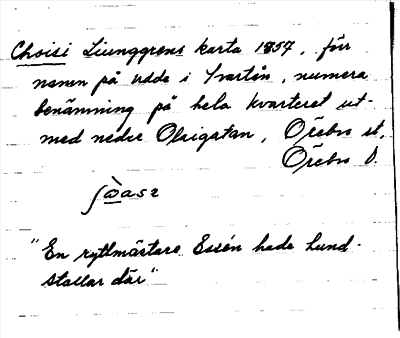 Choisi Ljunggrens karta 1857, förr
namn på udde i Svartån, numera
benämning på hela kvarteret ut-
med nedre Olaigatan, Örebro st.
Örebro ö.
"En ryttmästare Essén hade hund-
stallar där"